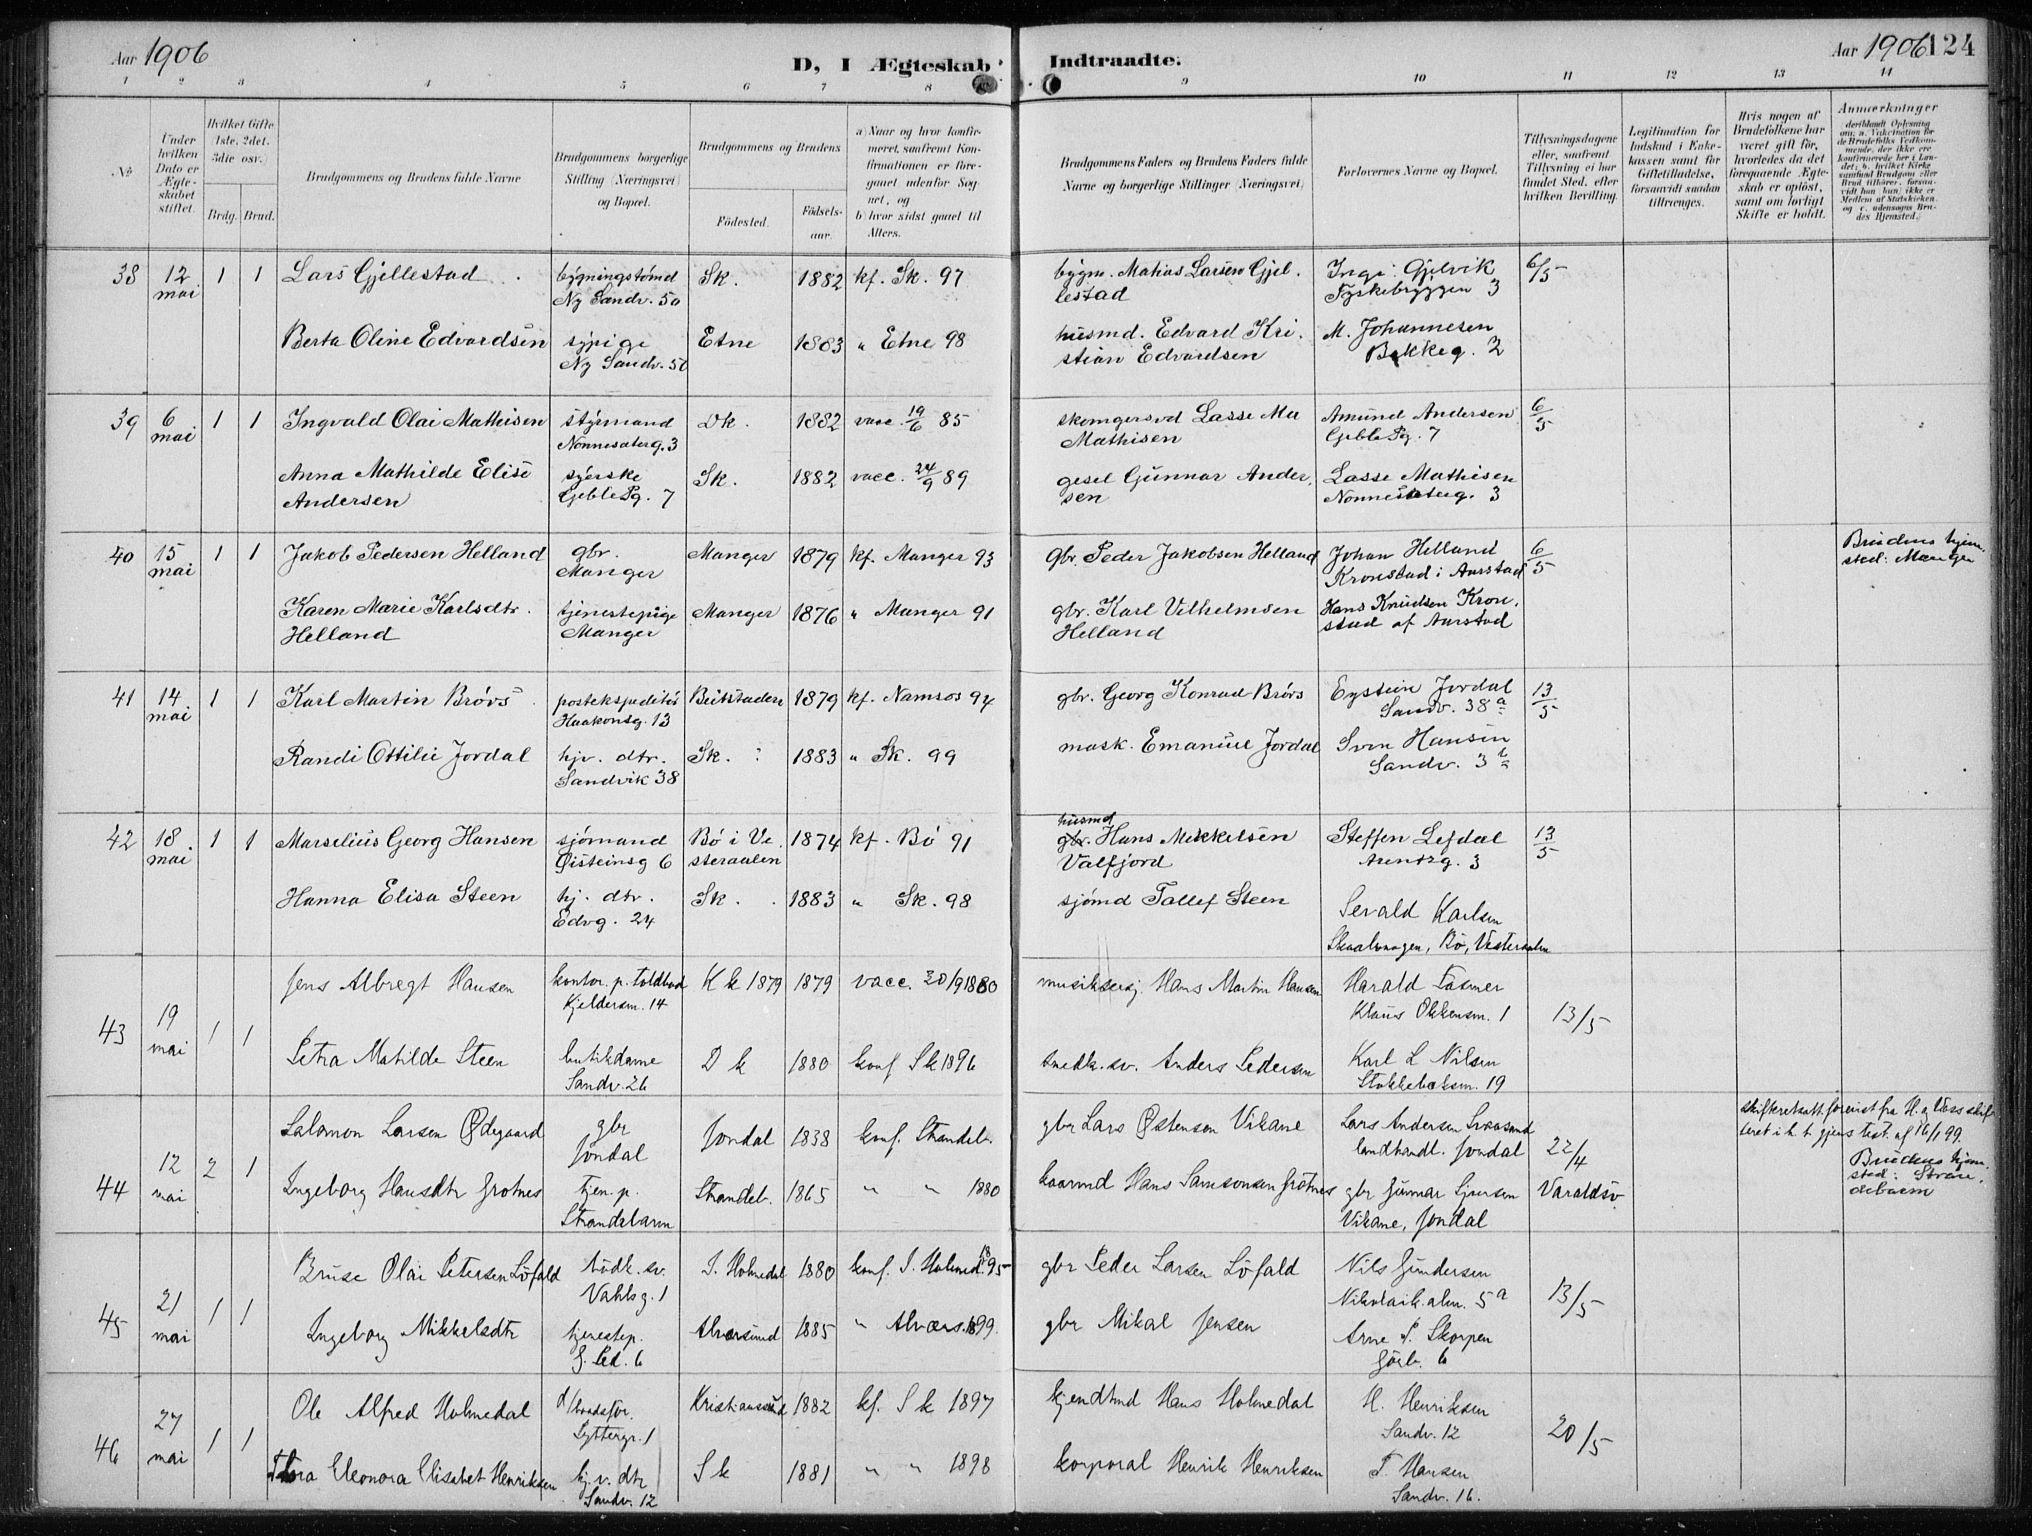 Aar 1906
D, I Ægteskab Indtraadte.
Aar 1906 124
1 2 3 4 5 6 7 8 9 10 11 12 13 14
No
Under hvilken Dato er Ægteskabet stiftet.
Hvilket Gifte (1ste, 2det, 3die osv.)
Brdg. Brud.
Brudgommens og Brudens fulde Navne
Brudgommens borgerlige Stilling (Næringsvei) og Bopæl.
Brudgommens og Brudens
Fødested. Fødselsaar.
a) Naar og hvor konfirmeret, saafremt Konfirmationen er foregaaet udenfor Sognet, og
b) hvor sidst gaaet til Alters.
Brudgommens Faders og Brudens Faders fulde Navne og borgerlige Stillinger (Næringsvei)
Forlovernes Navne og Bopæl.
Tillysningsdagene eller, saafremt Tillysning ei har fundet Sted, efter hvilken Bevilling.
Legitimation for Indskud i Enkekassen samt for Giftetilladelse, forsaavidt saadan tiltrænges.
Hvis nogen af Brudefolkene har været gift før, hvorledes da det foregaaende Ægteskab er opløst, samt om lovligt Skifte er holdt.
Anmerkninger
38 12 mai 1 1 Lars Gjellestad bygningstømd Ny Sandv. 50 Sk. 1882 kf. Sk. 97 bygm. Matias Larsen Gjellestad Inga Gjelvik Tyskebryggen 3 6/5
Berta Oline Edvardsen sypige Ny Sandv. 50 Etne 1883 " Etne 98 husmd. Edvard Kristian Edvardsen M. Johannesen Bakkeg. 2
39 6 mai 1 1 Ingvald Olai Mathisen styrmand Nonnesaterg. 3 Dk. 1882 vacc. 19/6 85 skomgersvd Lasse Ma Mathisen Amund Andersen Geble Pg. 7 6/5
Anna Mathilde Elise Andersen syerske Geble Pg. 7 Sk. 1882 vacc. 24/9 89 gesel Gunnar Andersen Lasse Mathisen Nonnesaterg. 3
40 15 mai 1 1 Jakob Pedersen Helland gbr. Manger Manger 1879 kf. Manger 93 Gbr. Peder Jakobsen Helland Johan Helland Kronstad i Aarstad 6/5 Brudens hjemsted: Manger
Karen Marie Karlsdtr. Helland tjenestepige Manger Manger 1876 " Manger 91 gbr. Karl Vilhelmsen Helland Hans Knudsen Kronstad af Aarstad
41 14 mai 1 1 Karl Martin Brørs postekspeditør Haakonsg. 13 Beitstaden 1879 kf. Namsos 94 gbr. Georg Konrad Brørs Eystein Jordal Sandv. 38 a 13/5
Randi Ottilie Jordal hjv. dtr. Sandvik 38 Sk. 1883 " Sk. 99 mask. Emanuel Jordal Sven Hansen Sandv. 3
42 18 mai 1 1 Marselius Georg Hansen sjømand Øisteinsg 6 Bø i Vesteraalen 1874 kf. Bø 91 husmd gbr. Hans Mikkelsen Valfjord Steffen Lefdal Arentzg. 3 13/5
Hanna Elisa Steen hj. dtr. Edvg. 24 Sk. 1883 " Sk. 98 sjømd Tallef Steen Sevald Karlsen Skaalvaagen, Bø, Vesteraalen
43 19 mai 1 1 Jens Albregt Hansen kontor. p. toldbod Kjeldersm. 14 Kk 1879 1879 vacc. 30/9 1880 musiksersj. Hans Martin Hansen Harald Fasmer Klaus Okkensm. 1 13/5
Petra Matilde Steen butikdame Sandv. 26 Dk 1880 konf Sk 1896 smedk. sv. Anders Pedersen Karl L Nilsen Stakkebaksm. 19
44 12 mai 2 1 Salomon Larsen Ødegaard gbr Jondal Jondal 1838 konf. Strandeb. gbr Lars Østensen Vikane Lars Andersen landhandl. Jondal 22/4 Varaldsø
Ingeborg Hansdtr Grotnes tjen. p. Strandebarm Strandeb. 1865 " " 1880 kaarmd Hans Samsonsen Grotnes gbr Gunnar Vikane, Jondal
skifteretsatt. forevist fra H. og Voss skifteret i h. t. gjens test. af 16/1 99.
Brudens hjemsted: Strandebarm
45 21 mai 1 1 Bruse Olai Petersen Løfald bødk. sv. Vahlsg. 1 S. Holmedal 1880 konf. S. Holmed. 1895 gbr Peder Larsen Løfald Nils Gundersen Nikolaik. alm. 5 a 13/5
Ingeborg Mikkelsdtr tjenestep. J. Ped. 6 Alversund 1885 " Alvers. 1899. gbr Mikal Jensen Arne P. Skorpen Jørb. 6
46 27 mai 1 1 Ole Alfred Holmedal Lyttergr. 1 Kristianssund 1882 kf. Sk 1897 kjendtmd Hans Holmedal H. Henriksen Sandv. 12 20/5
Thora Eleonora Elisabet Henriksen hj. v. dtr Sandv. 12 Sk 1881 " " 1898 korporal Henrik Henriksen T. Hansen Sandv. 16.